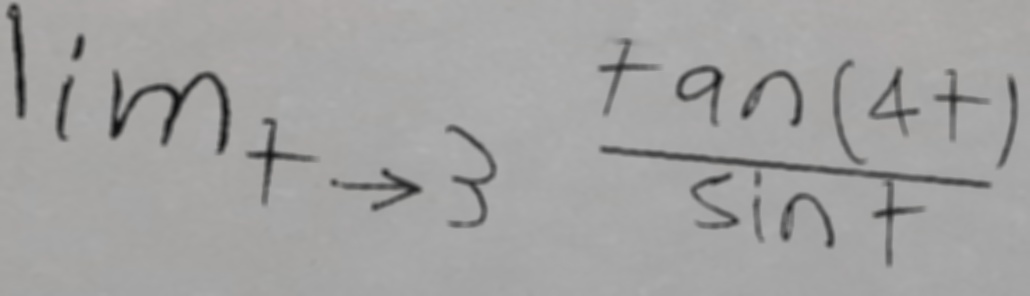 lim t→3 tan(4t)/sin t